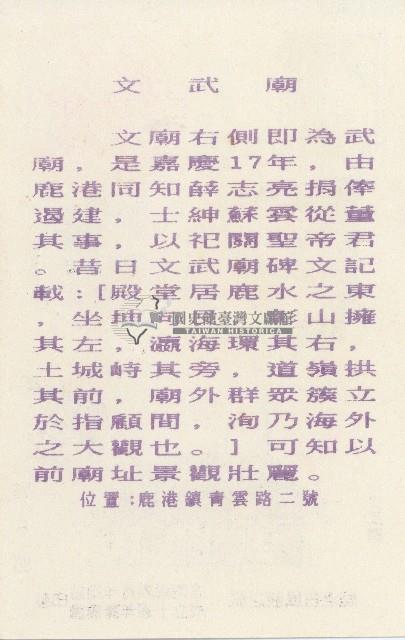 文武廟
文廟右側即為武
廟，是嘉慶17年，由
鹿港同知薛志亮捐俸
遏建，士紳蘇雲從董
其事，以祀關聖帝君
。昔日文武廟碑文記
載：[殿堂居鹿水之東
，坐坤向艮，彰山擁
其左，瀛海環其右，
土城峙其旁，道嶺拱
其前，廟外群眾簇立
於指顧間，洵乃海外
之大觀也。]可知以
前廟址景觀壯麗。
位置：鹿港鎮青雲路二號
國史館臺灣文獻館
TAIWAN HISTORICA